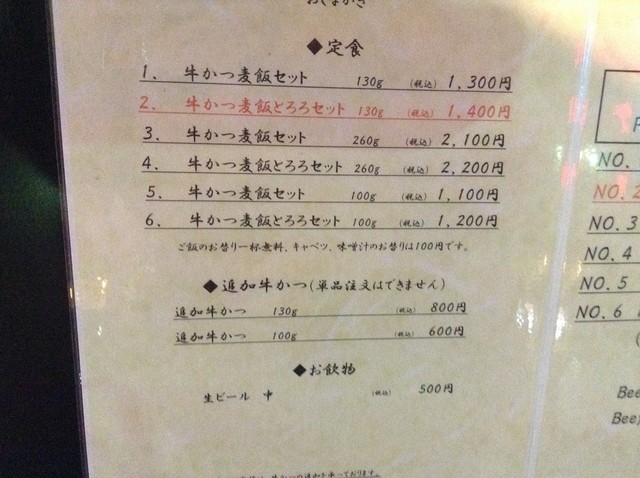 おしながき
◆定食
1. 牛かつ麦飯セット 130g (税込) 1,300円
2. 牛かつ麦飯とろろセット 130g (税込) 1,400円
3. 牛かつ麦飯セット 260g (税込) 2,100円
4. 牛かつ麦飯とろろセット 260g (税込) 2,200円
5. 牛かつ麦飯セット 100g (税込) 1,100円
6. 牛かつ麦飯とろろセット 100g (税込) 1,200円
ご飯のお替り一杯無料、キャベツ、味噌汁のお替りは100円です。
◆追加牛かつ(単品注文はできません)
追加牛かつ 130g (税込) 800円
追加牛かつ 100g (税込) 600円
◆お飲物
生ビール 中 (税込) 500円
牛かつの追加も承っております。
NO.
NO. 2
NO. 3
NO. 4
NO. 5
NO. 6
Bee
Beef